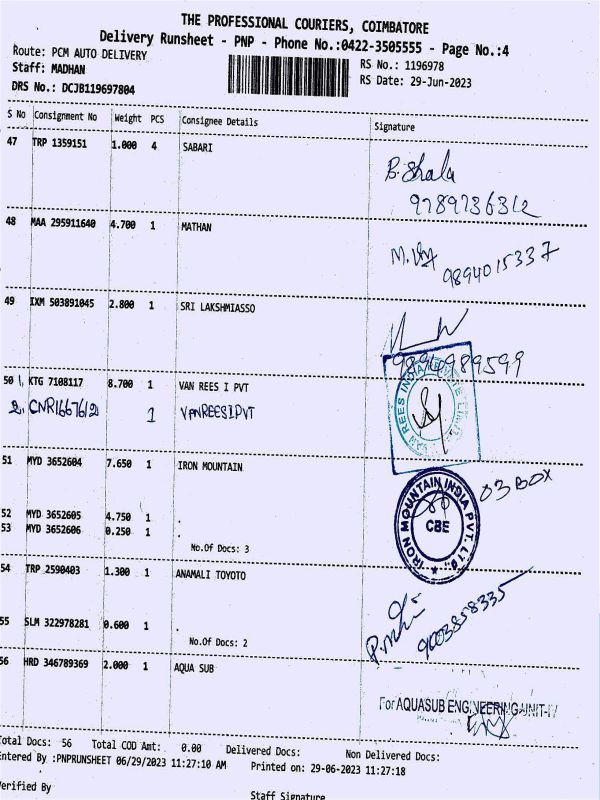 THE PROFESSIONAL COURIERS, COIMBATORE
Delivery Runsheet - PNP - Phone No.:0422-3505555 - Page No.:4
Route: PCM AUTO DELIVERY
RS No.: 1196978
Staff: MADHAN
RS Date: 29-Jun-2023
DRS No.: DCJB119697804
S No Consignment No Weight PCS Consignee Details Signature
47 TRP 1359151 1.000 4 SABARI
B. Shala
9789736312
48 MAA 295911640 4.700 1 MATHAN
9894015337
49 IXM 503891045 2.800 1 SRI LAKSHMIASSO
9890989599
50 1, KTG 7108117 8.700 1 VAN REES I PVT
2. 1 VANREESIPVT
51 MYD 3652604 7.650 1 IRON MOUNTAIN
03 BOX
IRON MOUNTAIN INDIA PVT. LTD.
CBE
52 MYD 3652605 4.750 1 .
53 MYD 3652606 0.250 1 .
No.Of Docs: 3
54 TRP 2590403 1.300 1 ANAMALI TOYOTO
9003858335
55 SLM 322978281 0.600 1 .
No.Of Docs: 2
56 HRD 346789369 2.000 1 AQUA SUB
For AQUASUB ENGINEERING-UNIT-IV
Total Docs: 56 Total COD Amt: 0.00 Delivered Docs: Non Delivered Docs:
Entered By :PNPRUNSHEET 06/29/2023 11:27:10 AM Printed on: 29-06-2023 11:27:18
Verified By
Staff Signature